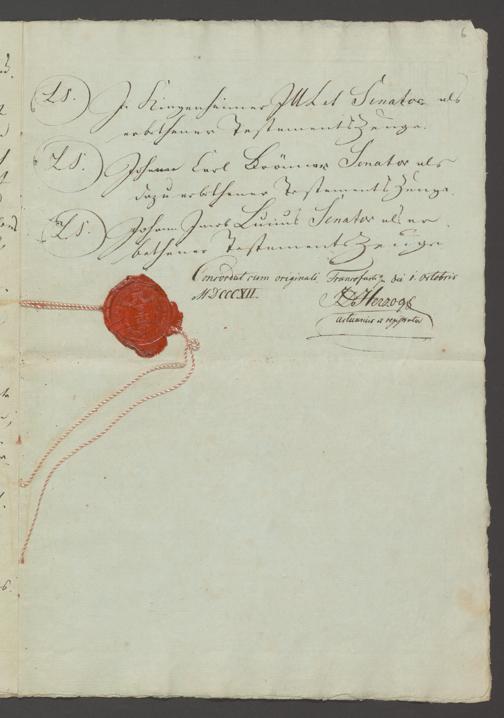 6
LS. J. Klingenheimer JUL et Senator als
erbethener Testaments Zeuge.
LS. Johann Carl Brönner Senator als
dazu erbethener Testaments Zeuge.
LS. Johann Jacob Lucius Senator als er-
bethener Testaments Zeuge
Concordat cum originali, Francofurti die 1. Octobris
MDCCCXII.
Herzog
actuarius et registrator